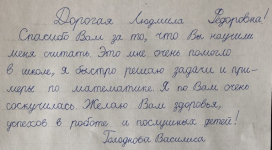 Дорогая Людмила Фёдоровна!
Спасибо Вам за то, что Вы научили
меня считать. Это мне очень помогло
в школе, я быстро решаю задачи и при-
меры по математике. Я по Вам очень
соскучилась. Желаю Вам здоровья,
успехов в работе и послушных детей!
Голоднова Василиса